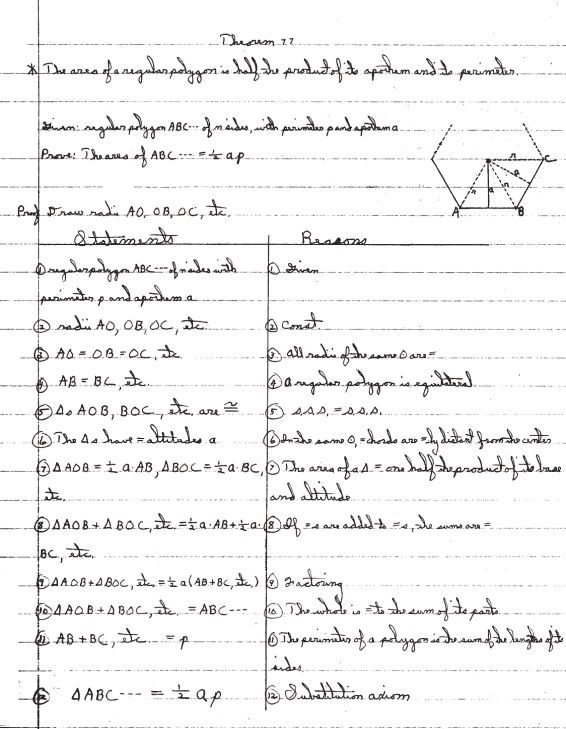 Theorem 77
* The area of a regular polygon is half the product of its apothem and its perimeter.
Given: regular polygon ABC··· of n sides, with perimeter p and apothem a
Prove: The area of ABC ··· = ½ ap
Proof Draw radii AO, OB, OC, etc.
r C
a
r a r
A B
Statements Reasons
① regular polygon ABC--- of n sides with ① Given
perimeter p and apothem a
② radii AO, OB, OC, etc. ② Const.
③ AO = OB = OC, etc ③ All radii of the same O are =
④ AB = BC, etc. ④ A regular polygon is equilateral
⑤ Δs AOB, BOC, etc. are ≅ ⑤ s.s.s. = s.s.s.
⑥ The Δs have = altitudes a ⑥ In the same O, = chords are =ly distant from the center
⑦ ΔAOB = ½ a·AB, ΔBOC = ½ a·BC, ⑦ The area of a Δ = one half the product of its base
etc. and altitude
⑧ ΔAOB + ΔBOC, etc. = ½ a·AB + ½ a· ⑧ If =s are added to =s, the sums are =
BC, etc.
⑨ ΔAOB + ΔBOC, etc. = ½ a(AB+BC, etc.) ⑨ Factoring
⑩ ΔAOB + ΔBOC, etc. = ABC --- ⑩ The whole is = to the sum of its parts
⑪ AB + BC, etc = p ⑪ The perimeter of a polygon is the sum of the lengths of its
sides.
⑫ ΔABC ---- = ½ ap ⑫ Substitution axiom